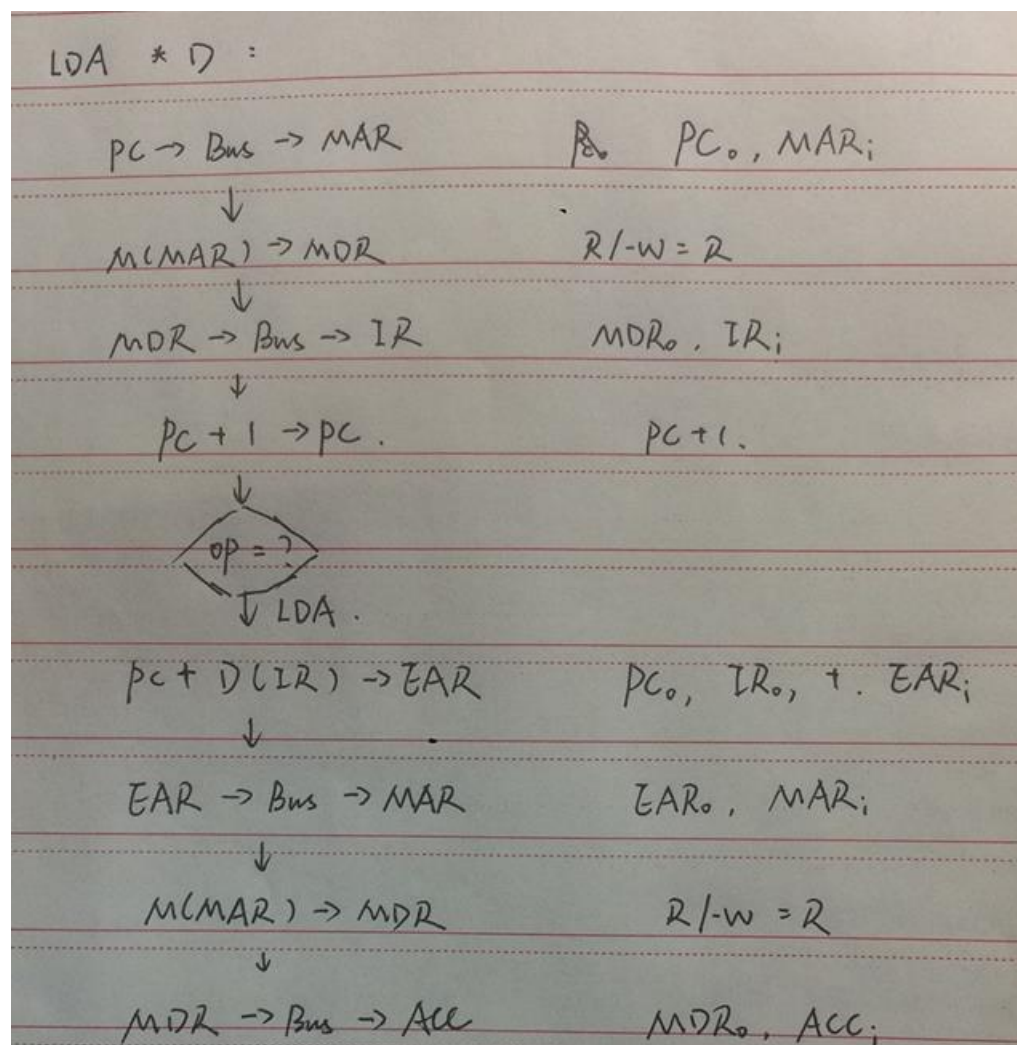 LDA * D :
PC → Bus → MAR PC₀, MARᵢ
↓
M(MAR) → MDR R/-W = R
↓
MDR → Bus → IR MDR₀, IRᵢ
↓
PC + 1 → PC. PC+1.
↓
OP = ?
↓ LDA.
PC + D(IR) → EAR PC₀, IR₀, +. EARᵢ
↓
EAR → Bus → MAR EAR₀, MARᵢ
↓
M(MAR) → MDR R/-W = R
↓
MDR → Bus → ACC MDR₀, ACCᵢ